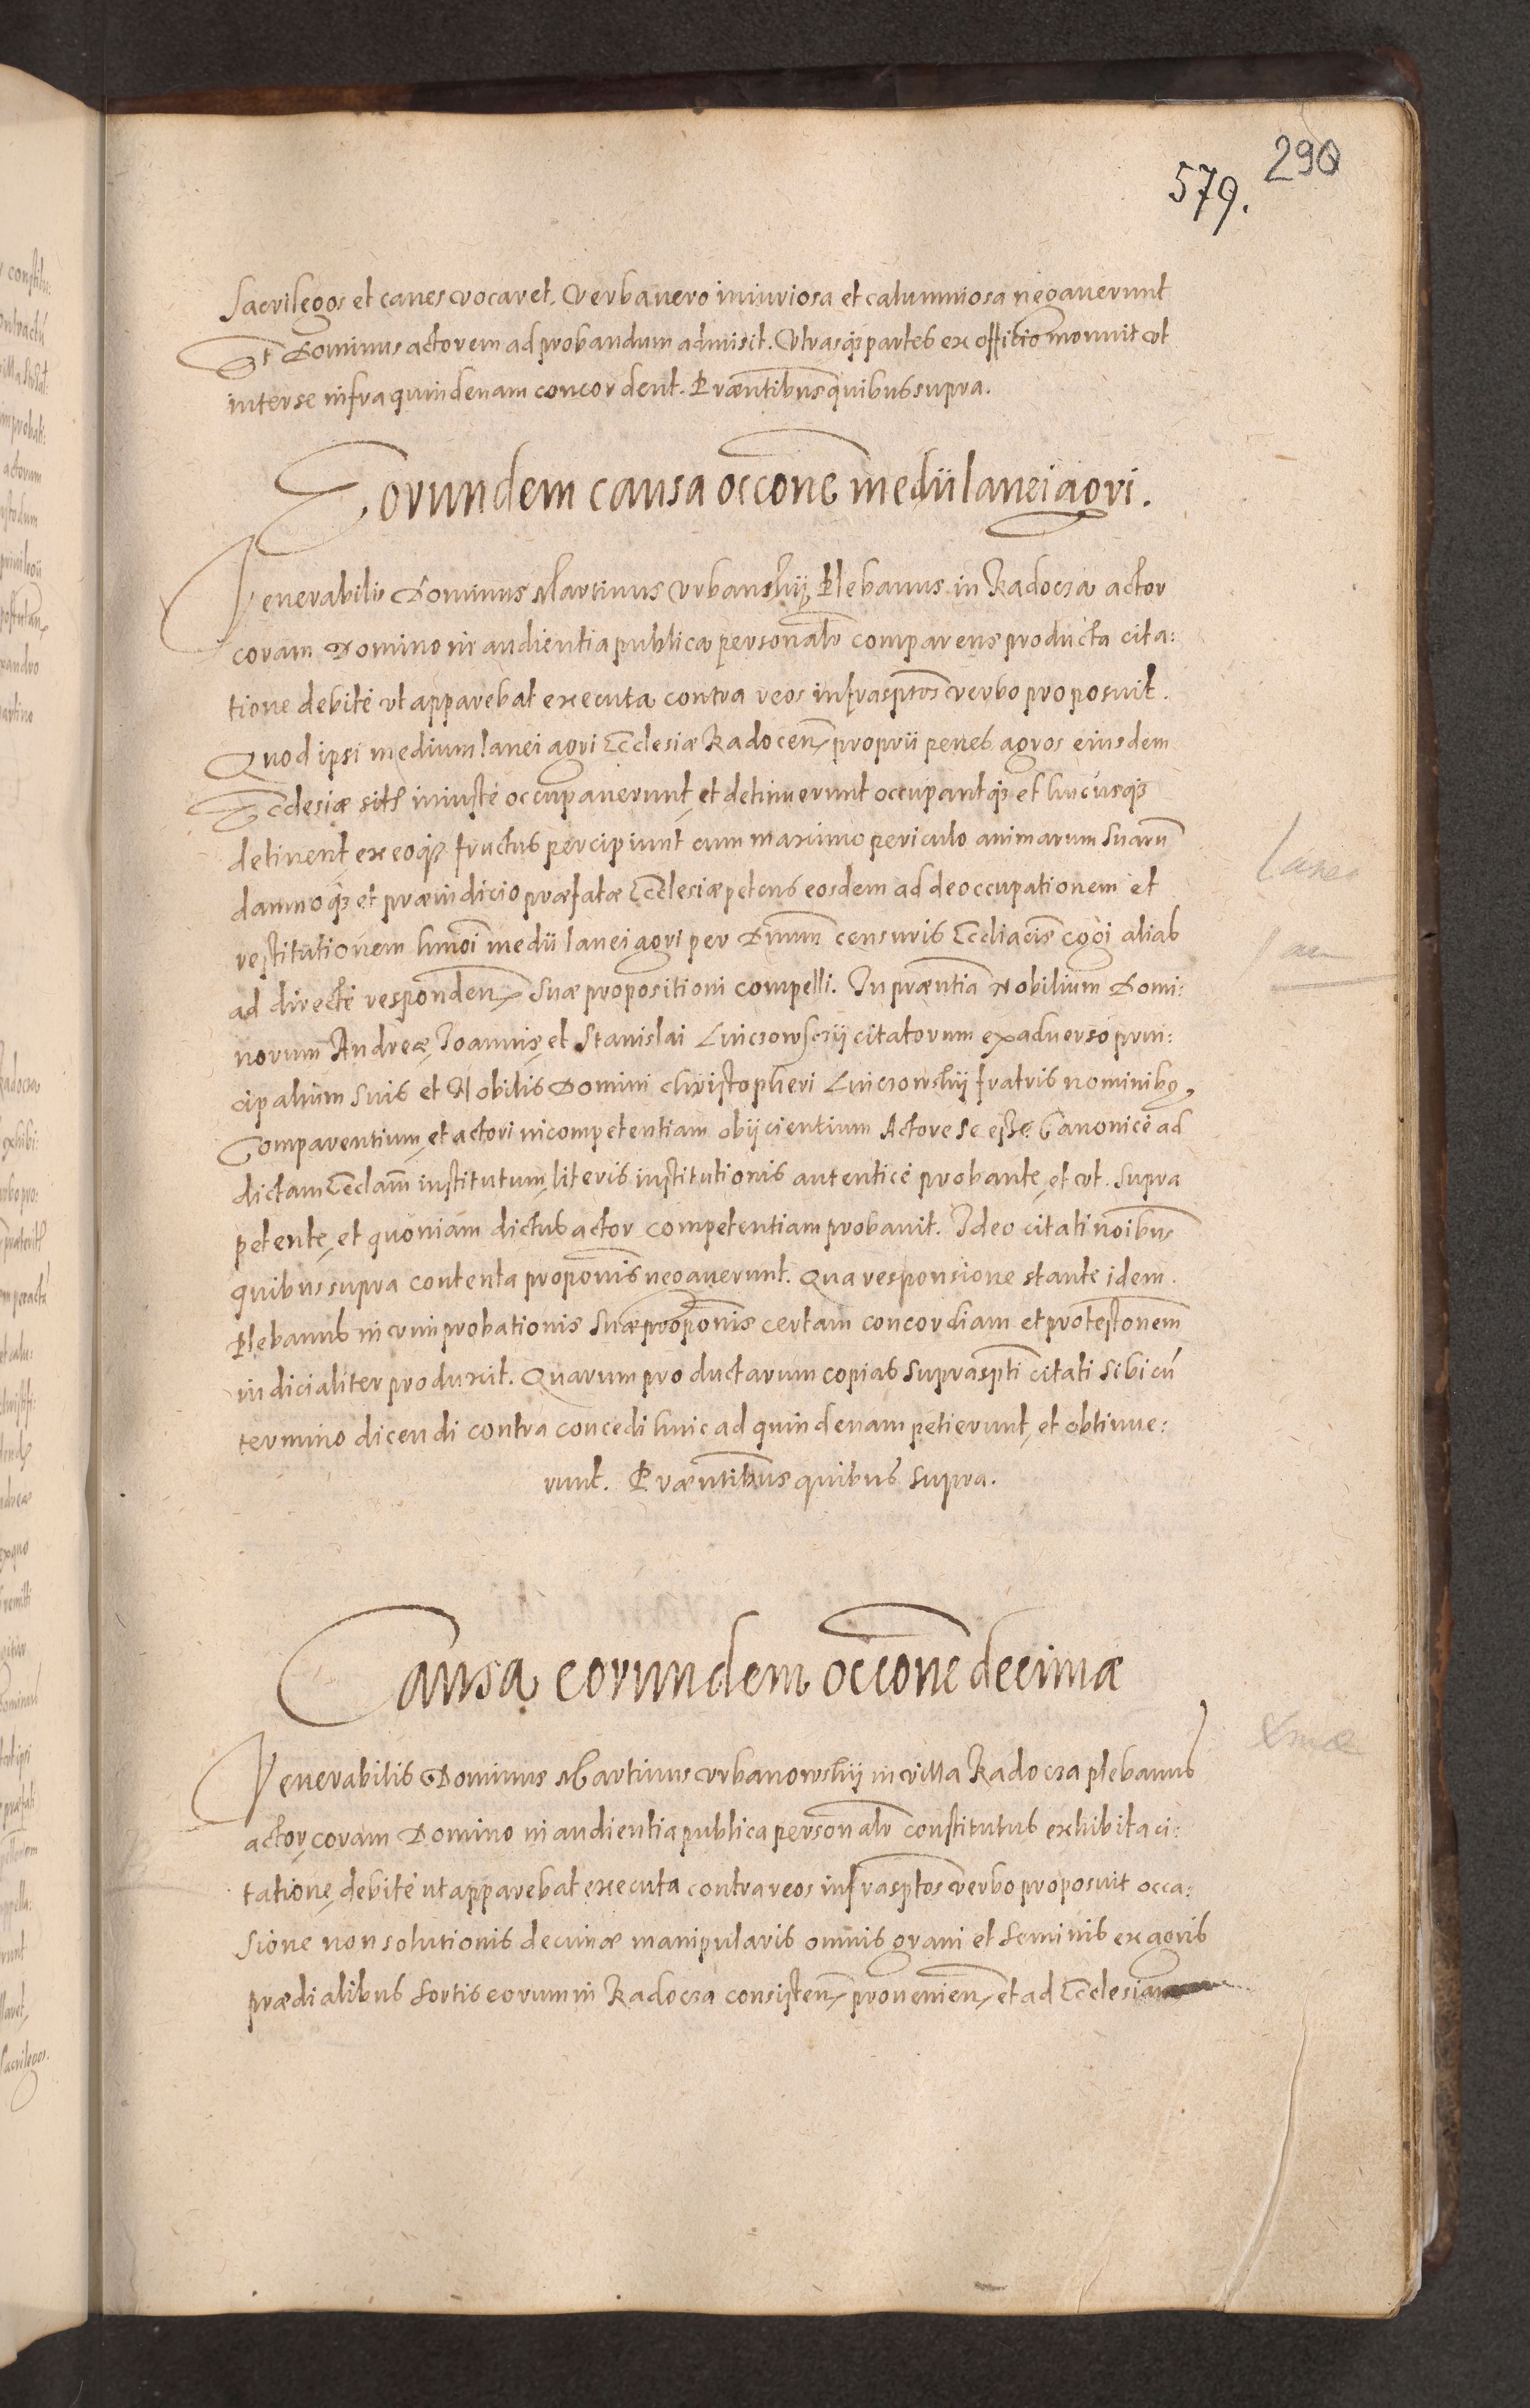 290
579.
Sacrilegos et canes vocaret. Verba vero iniuriosa et calumniosa negaverunt
Et Dominus actorem ad probandum admisit. Utrasq3 partes ex offitio monuit vt
inter se infra quindenam concordent. Præntibus quibus supra.
Eorundem causa occone medii lanei agri.
Venerabilis Dominus Martinus Vrbanskij Plebanus in Radocza actor
coram Domino in audientia publica personalr comparens producta cita:
tione debitè vt apparebat executa contra reos infrasptos verbo proposuit.
Quod ipsi medium lanei agri Ecclesiæ Radocen proprii penes agros eiusdem
Ecclesiæ siti iniustè occupaverunt, et detinuerunt occupantq3 et hucusq3
detinent ex eoq3 fructus percipiunt cum maximo periculo animarum suaru
damnoq3 et præiudicio præfatæ Ecclesiæ petens eosdem ad deoccupationem et
restitutionem hmoi medii lanei agri per Dnum censuris Eccliacis cogi alias
ad directè responden suæ propositioni compelli. In præntia Nobilium Domi:
norum Andreæ, Joannis, et Stanislai Luiczowscij citatorum ex adverso prin:
cipalium suis et Nobilis Domini Christopheri Luiczowskij fratris nominibq
Comparentium, et actori incompetentiam obijcientium Actore se esse Canonicè ad
dictam Ecclam institutum, literis institutionis autenticè probante, et vt. supra
petente, et quoniam dictus actor competentiam probavit. Ideo citati noibus
quibus supra contenta proponis negaverunt. Qua responsione stante idem.
Plebanus in vim probationis suæ proponis certam concordiam et protestonem
iudicialiter produxit. Quarum productarum copias suprascpti citati sibi cu
termino dicendi contra concedi hinc ad quindenam petierunt, et obtinue:
runt. Præntibus quibus supra.
Causa eorundem occone decimæ
Venerabilis Dominus Martinus Vrbanowskij in villa Radocza plebanus
actor, coram Domino in audientia publica personalr constitutus exhibita ci:
tatione, debitè ut apparebat executa contra reos infrasptos verbo proposuit occa:
sione non solutionis decimæ manipularis omnis grani et seminis ex agris
prædialibus sortis eorum in Radocza consisten provenien, et ad Ecclesiam